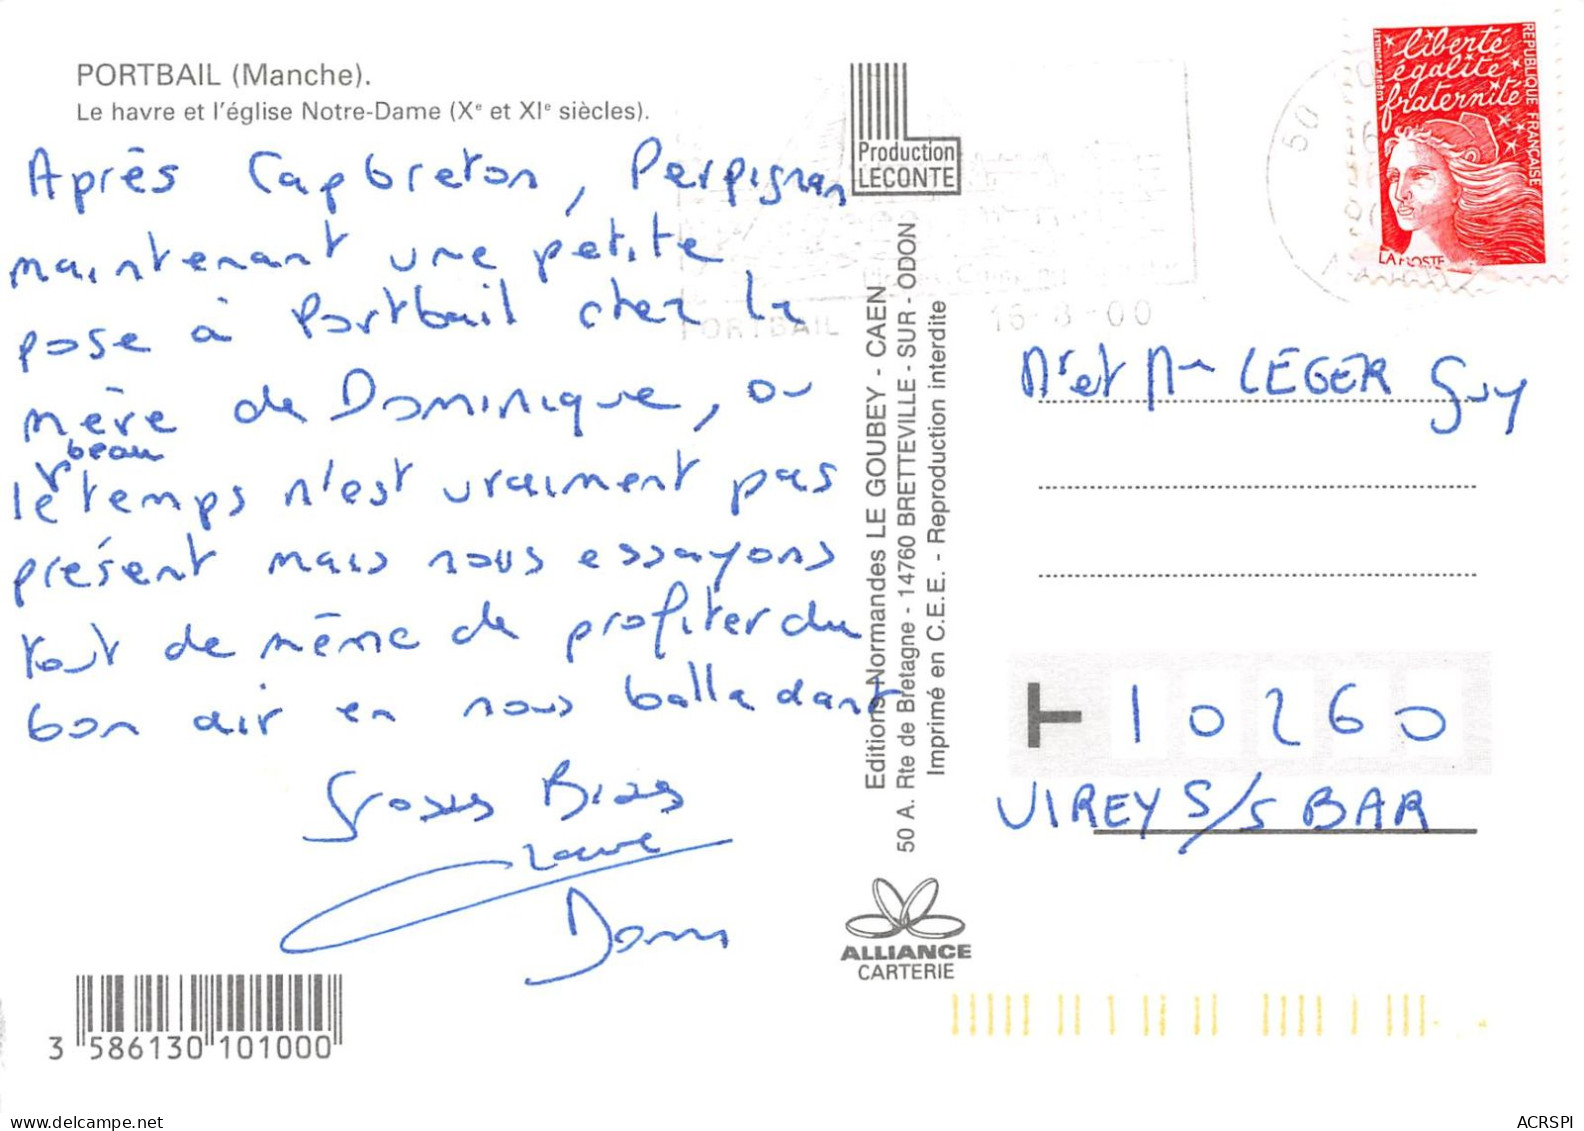 PORTBAIL (Manche).
Le havre et l'église Notre-Dame (Xe et XIe siècles).
Après Capbreton, Perpignan
maintenant une petite
pose à Portbail chez la
mère de Dominique, où
beau
le temps n'est vraiment pas
présent mais nous essayons
tout de même de profiter du
bon air en nous balladant
Grosses Bises
Dom
3 586130 101000
Production
LECONTE
Editions Normandes LE GOUBEY - CAEN
50 A. Rte de Bretagne - 14760 BRETTEVILLE - SUR - ODON
Imprimé en C.E.E. - Reproduction interdite
ALLIANCE
CARTERIE
PORTBAIL
16-8-00
50
liberté
égalité
fraternité
REPUBLIQUE FRANÇAISE
LA POSTE
Mr et Mme LEGER Guy
10260
VIREY S/S BAR
www.delcampe.net
ACRSPI